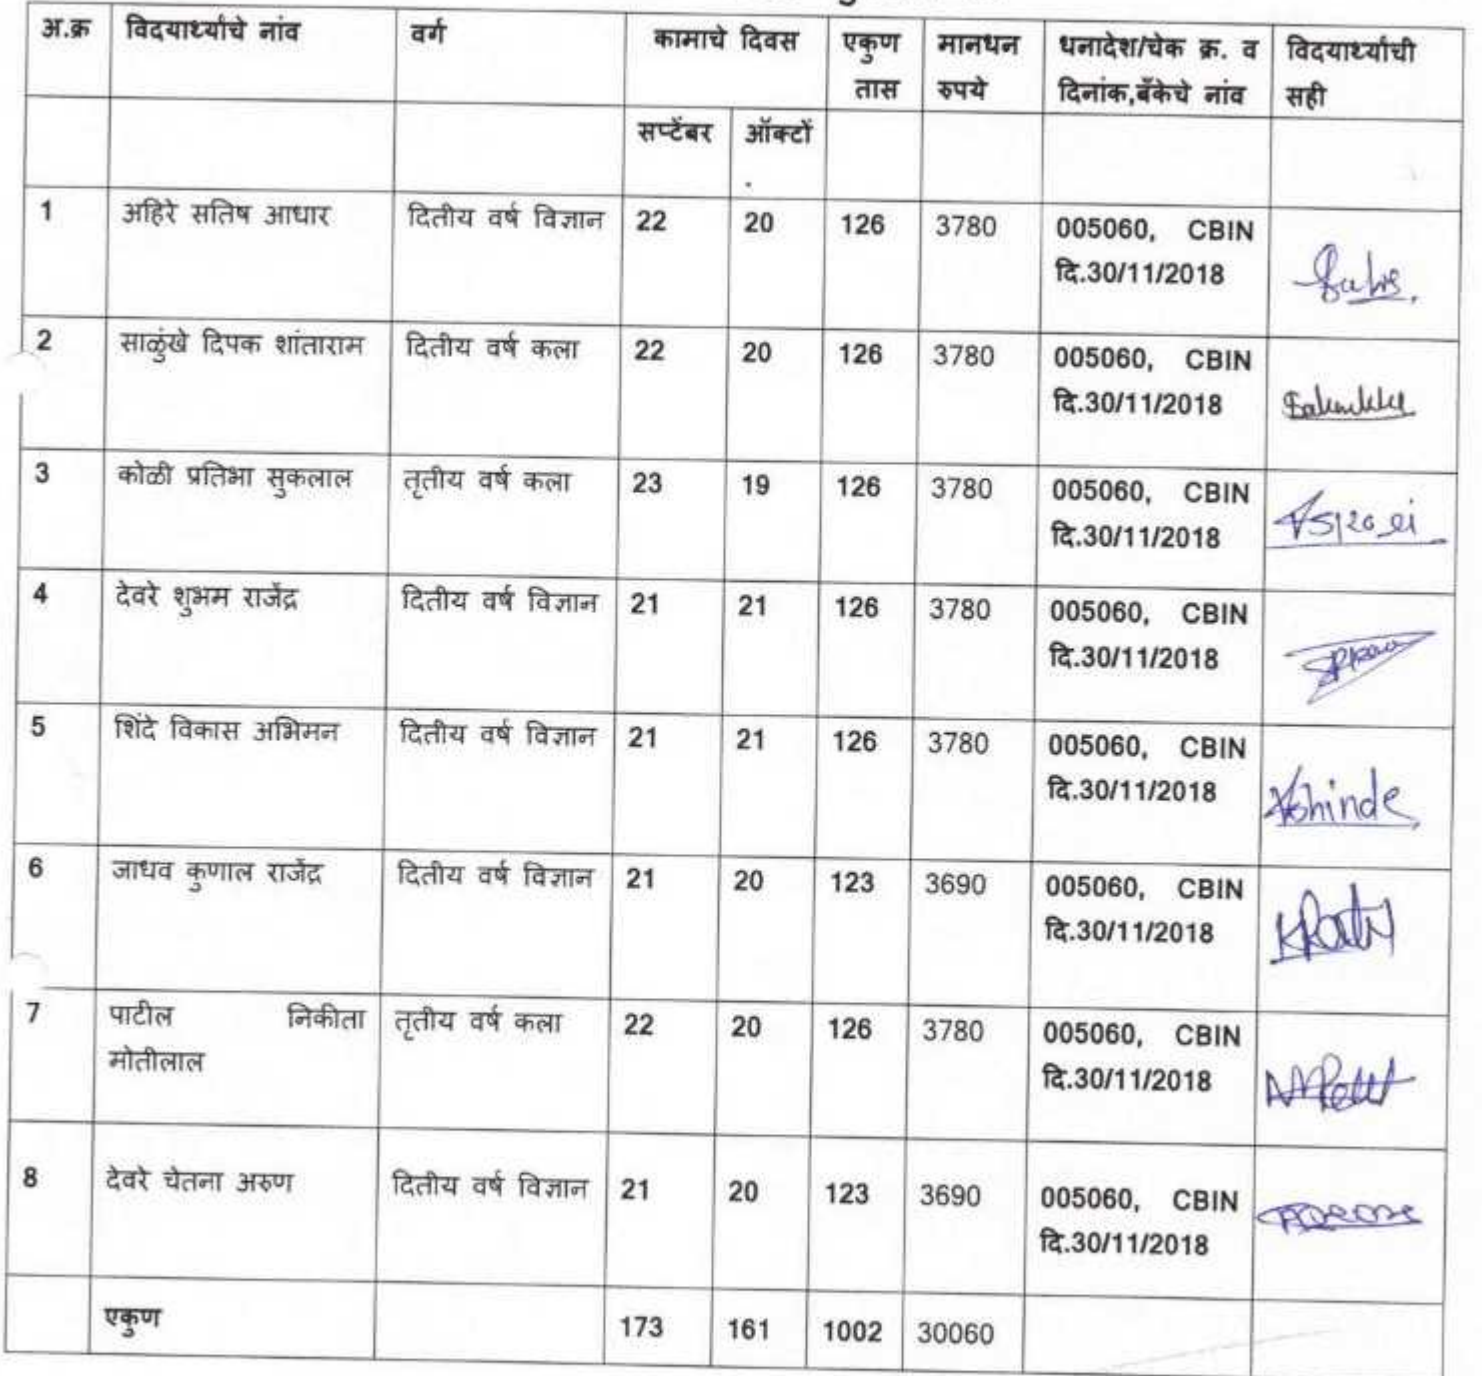 अ.क्र विदयार्थ्याचे नांव वर्ग कामाचे दिवस एकुण तास मानधन रुपये धनादेश/चेक क्र. व दिनांक,बँकेचे नांव विदयार्थ्याची सही
सप्टेंबर ऑक्टों.
1 अहिरे सतिष आधार दितीय वर्ष विज्ञान 22 20 126 3780 005060, CBIN
दि.30/11/2018
2 साळुंखे दिपक शांताराम दितीय वर्ष कला 22 20 126 3780 005060, CBIN
दि.30/11/2018
3 कोळी प्रतिभा सुकलाल तृतीय वर्ष कला 23 19 126 3780 005060, CBIN
दि.30/11/2018
4 देवरे शुभम राजेंद्र दितीय वर्ष विज्ञान 21 21 126 3780 005060, CBIN
दि.30/11/2018
5 शिंदे विकास अभिमन दितीय वर्ष विज्ञान 21 21 126 3780 005060, CBIN
दि.30/11/2018 Vshinde
6 जाधव कुणाल राजेंद्र दितीय वर्ष विज्ञान 21 20 123 3690 005060, CBIN
दि.30/11/2018
7 पाटील निकीता तृतीय वर्ष कला 22 20 126 3780 005060, CBIN
मोतीलाल दि.30/11/2018
8 देवरे चेतना अरुण दितीय वर्ष विज्ञान 21 20 123 3690 005060, CBIN
दि.30/11/2018
एकुण 173 161 1002 30060